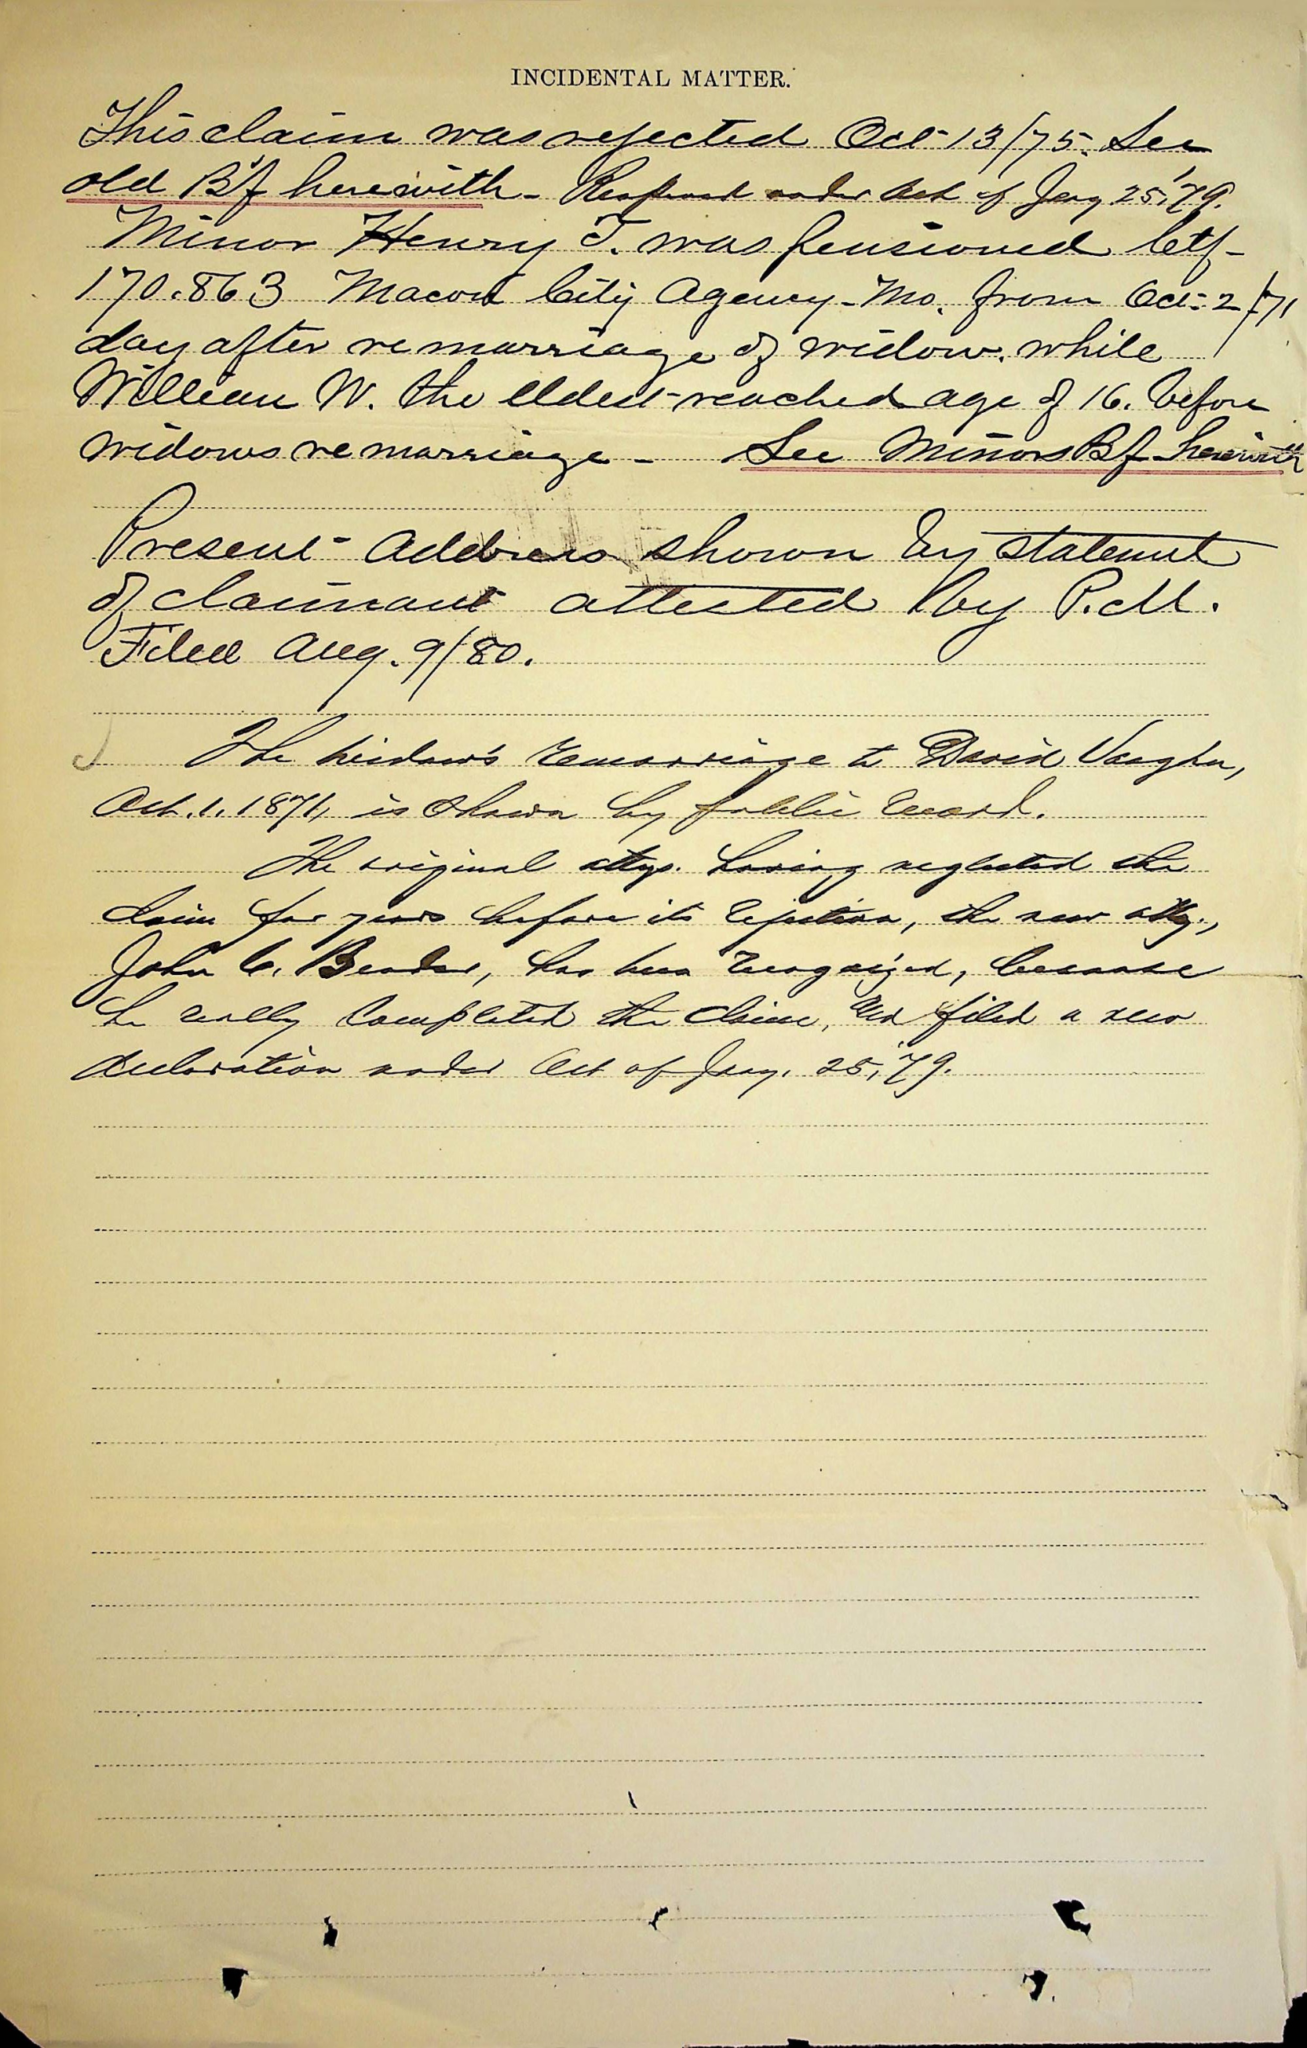 INCIDENTAL MATTER.
This claim was rejected Oct 13/75. See
old B'f herewith - Reopened under Act of Jany 25, '79.
Minor Henry T. was pensioned Ctf -
170.863 Macon City Agency - Mo. from Oct. 2/71
day after remarriage of widow. while
William W. the eldest reached age of 16. before
widows remarriage - See Minors Bf herewith
Present Address shown by statement
of claimant attested by P.M.
Filed Aug. 9/80.
The widow's remarriage to David Vaughn,
Oct. 1. 1871, is shown by public record.
The original attys. having neglected the
claim for years before its rejection, the new atty.,
John C. Bender, has been recognized, because
he really completed the claim, and filed a new
declaration under Act of Jany. 25, '79.